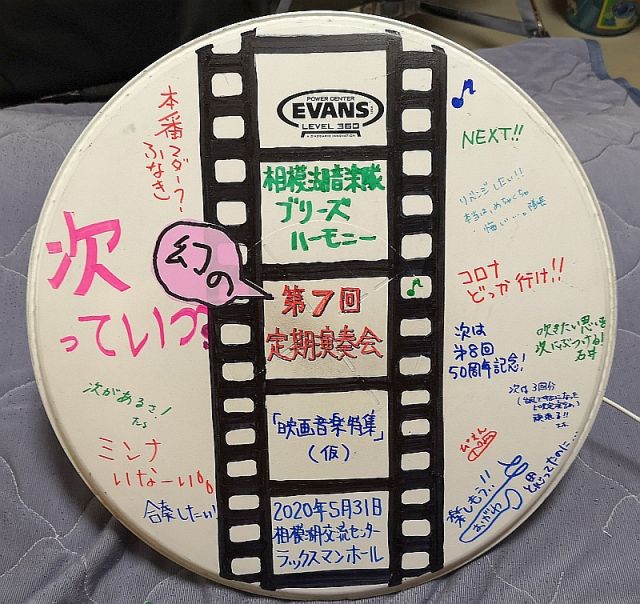 POWER CENTER
EVANS
LEVEL 360
A D'ADDARIO INNOVATION
相模湖音楽隊
ブリーズ
ハーモニー
幻の
第7回
定期演奏会
「映画音楽特集」
(仮)
2020年5月31日
相模湖交流センター
ラックスマンホール
本番マダー?
ふなき
次
っていつ?
次があるさ!
ミンナ
いなーい
合奏したい!
NEXT!!
リベンジしたい!!
本当は、めちゃくちゃ
悔い…。隊長
コロナ
どっか行け!!
次は
第8回
50周年記念!
吹きたい思いを
次にぶつける!
石井
次は3回分
頑張る!!
楽しもう!!
おがわ